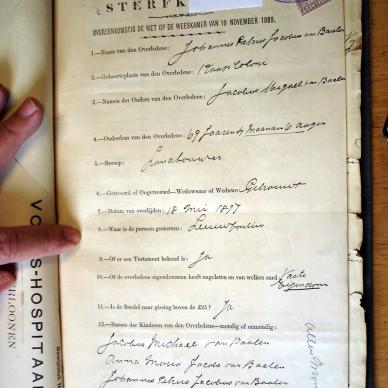 STERFK
OVEREENKOMSTIG DE WET OP DE WEESKAMER VAN 10 NOVEMBER 1889.
1.—Naam van den Overledene: Johannes Petrus Jacobus van Baalen
2.—Geboorteplaats van den Overledene: Kaap Coloni
3.—Namen der Ouders van den Overledene: Jacobus Migael van Baalen
4.—Ouderdom van den Overledene: 69 Jaaren 4 Maanan 6 dagen
5.—Beroep:
6.—Getrouwd of Ongetrouwd—Weduwnaar of Weduwe: Getrouwt
7.—Datum van overlijden: 18 Mei 1897
8.—Waar is de persoon gestorven: Leeuwfontin
9.—Of er een Testament bekend is: Ja
10.—Of de overledene eigendommen heeft nagelaten en van welken aard Vaste Eigendom
11.—Is de Boedel naar gissing boven de £25? Ja
12.—Namen der Kinderen van den Overledene—mondig of onmondig:
Jacobus Michael van Baalen
Anna Maria Jacoba van Baalen
Johannes Petrus Jacobus van Baalen
VO
S-HOSPITAA
HRLOONEN